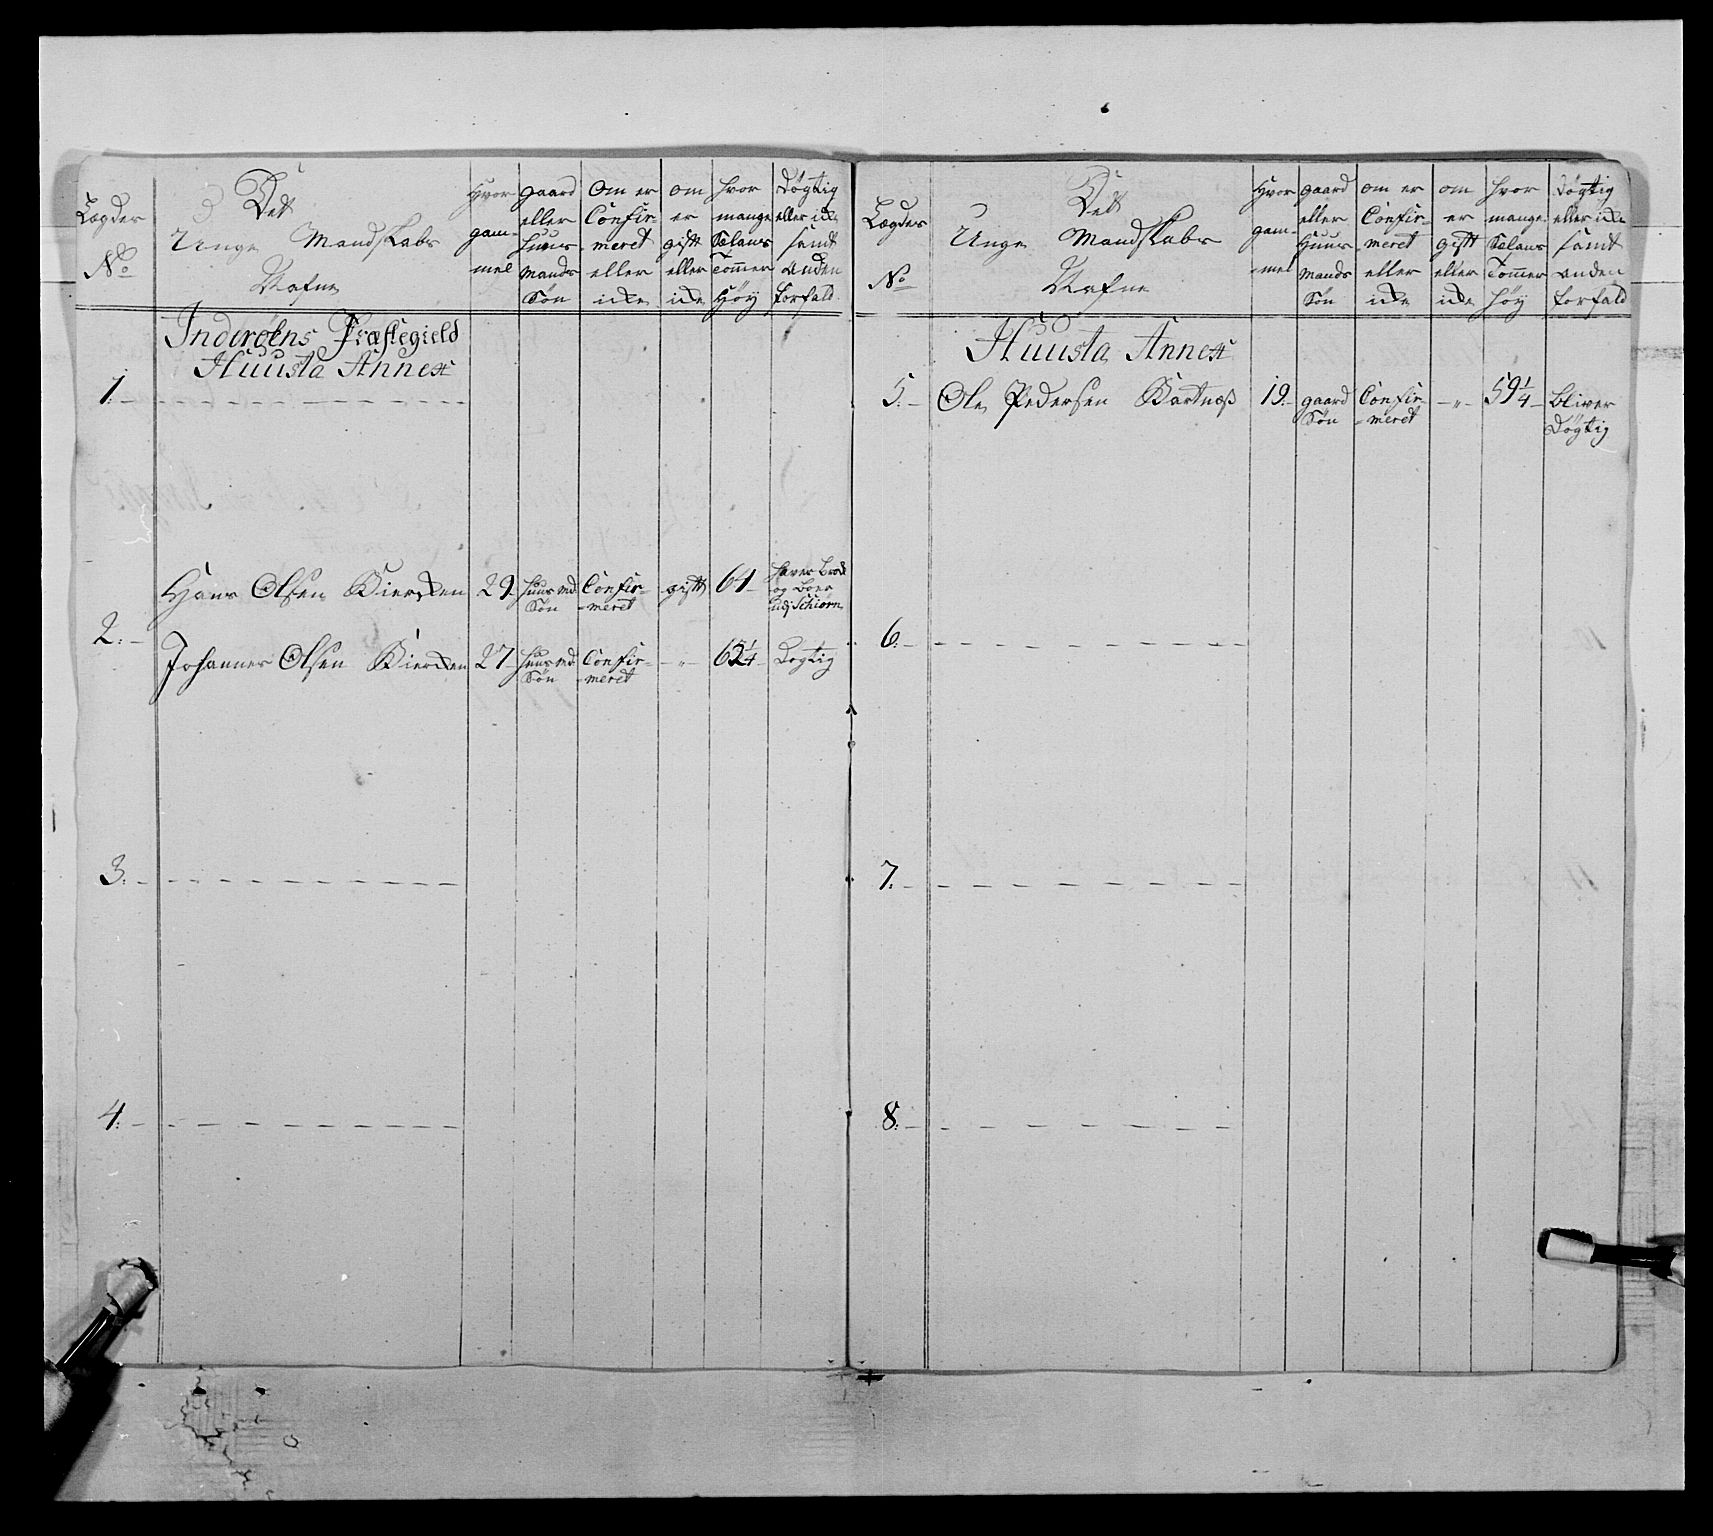 Lægder No
Det Unge Mandskabs Nafne
Hvor gam- mel
gaard eller Huus mands Søn
Om er Confir- meret eller icke
om er gift eller icke
hvor mange Sælans Tommer Høy
Døgtig eller icke samt anden forfald
Inderøens Præstegield
Huusta Annex
1.
2.
Hans Olsen 29 Huusmd Søn Confir- meret gift 64 haver Brok og Boer udj Schiørn
Johannes Olsen 27 Huusmd Søn Confir- meret - " - 62 1/4 Dogtig
3.
4.
Lægders No
Det Unge Mandskabs Nafne
Hvor gam- mel
gaard eller Huus mands Søn
om er Confir- meret eller icke
om er gift eller icke
hvor mange Sælans Tommer høy
Døgtig eller icke samt anden forfald
Huusta Annex
5. Ole Pedersen Kartnæß 19 gaard Søn Confir- meret - " - 59 1/4 bliver Døgtig
6.
7.
8.